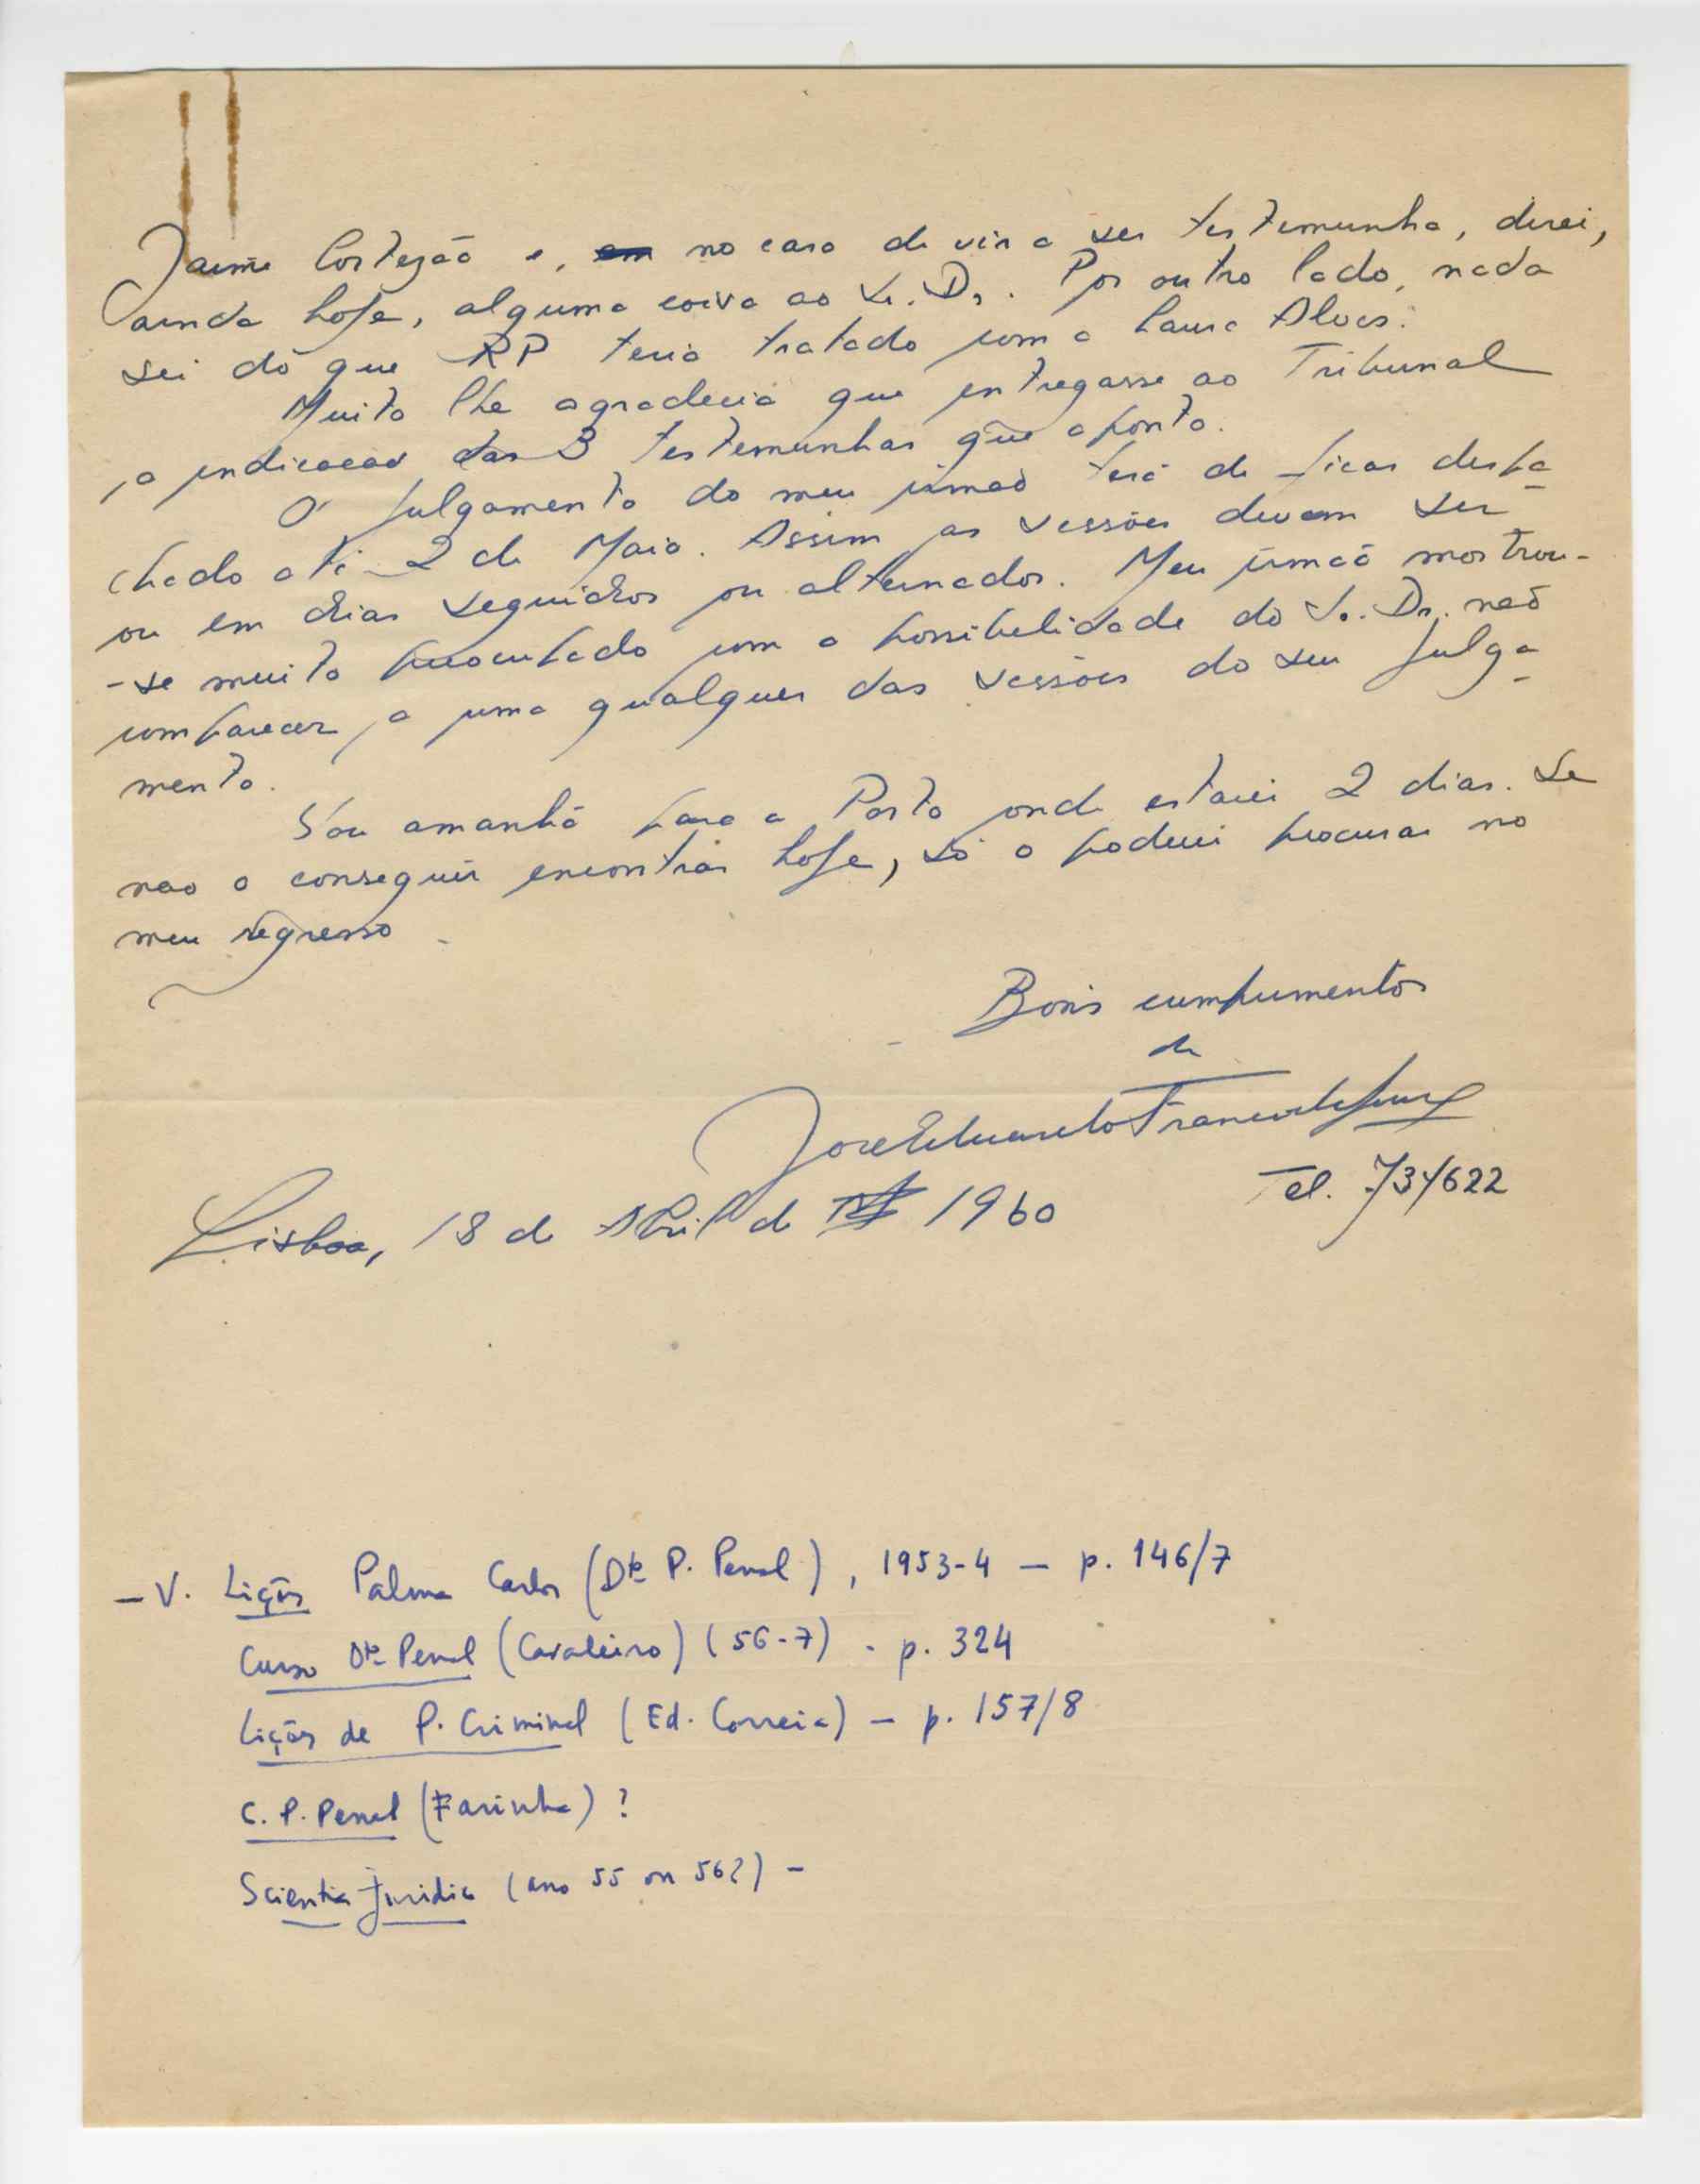 Jaime Cortezão e, no caso de vir a ser testemunha, direi,
ainda hoje, alguma coisa ao Sr. Dr. Por outro lado, nada
sei do que RP teria tratado com a Laura Alves.
Muito lhe agradecia que entregasse ao Tribunal
a indicacao das 3 testemunhas que aponto.
O julgamento do meu irmão terá de ficar despa
chado até 2 de Maio. Assim as sessões devem ser
ou em dias seguidos ou alternados. Meu irmão mostrou-
-se muito preocupado com a possibelidade do Sr. Dr. não
comparecer a uma qualquer das sessões do seu julga
mento.
Vou amanhã para o Porto onde estarei 2 dias. Se
nao o conseguir encontrar hoje, só o poderei procurar no
meu regresso.
Bons cumprimentos
de
José Eduardo
Tel. 731622
Lisboa, 18 de Abril de 1960
- V. Lições Palma Carlos (Dto P. Penal), 1953-4 - p. 146/7
Curso Dto Penal (Cavaleiro) (56-7) - p. 324
Lições de P. Criminal (Ed. Correia) - p. 157/8
C. P. Penal (Farinha) ?
Scientia Juridica (ano 55 ou 56?) -